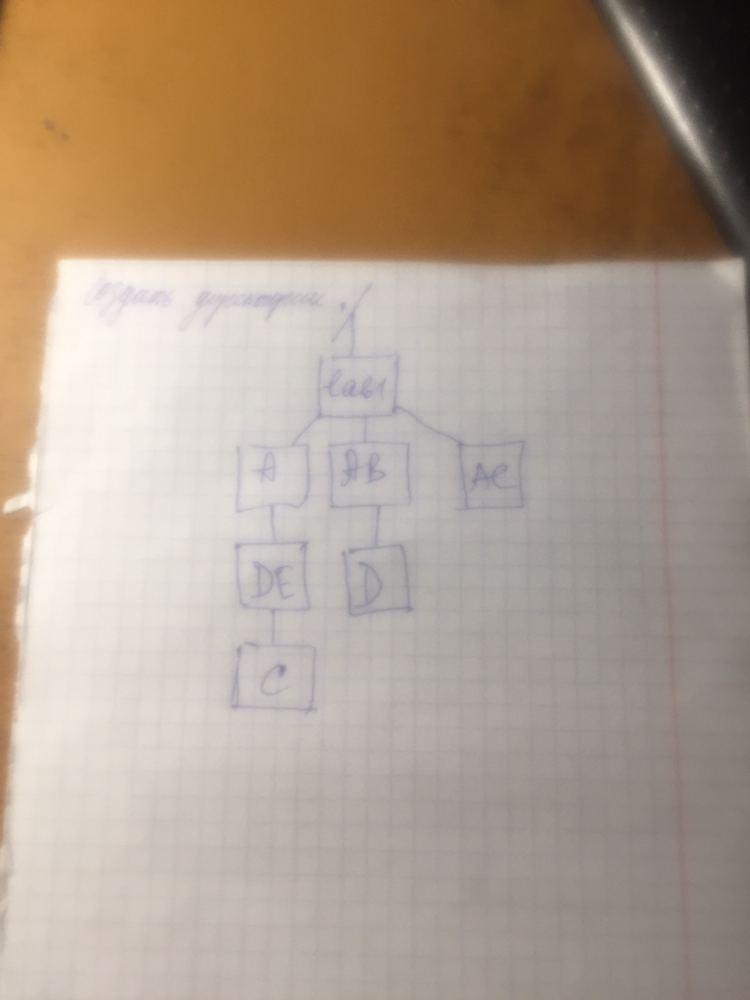 Создать директории ./
lab1
A AB AC
DE D
C